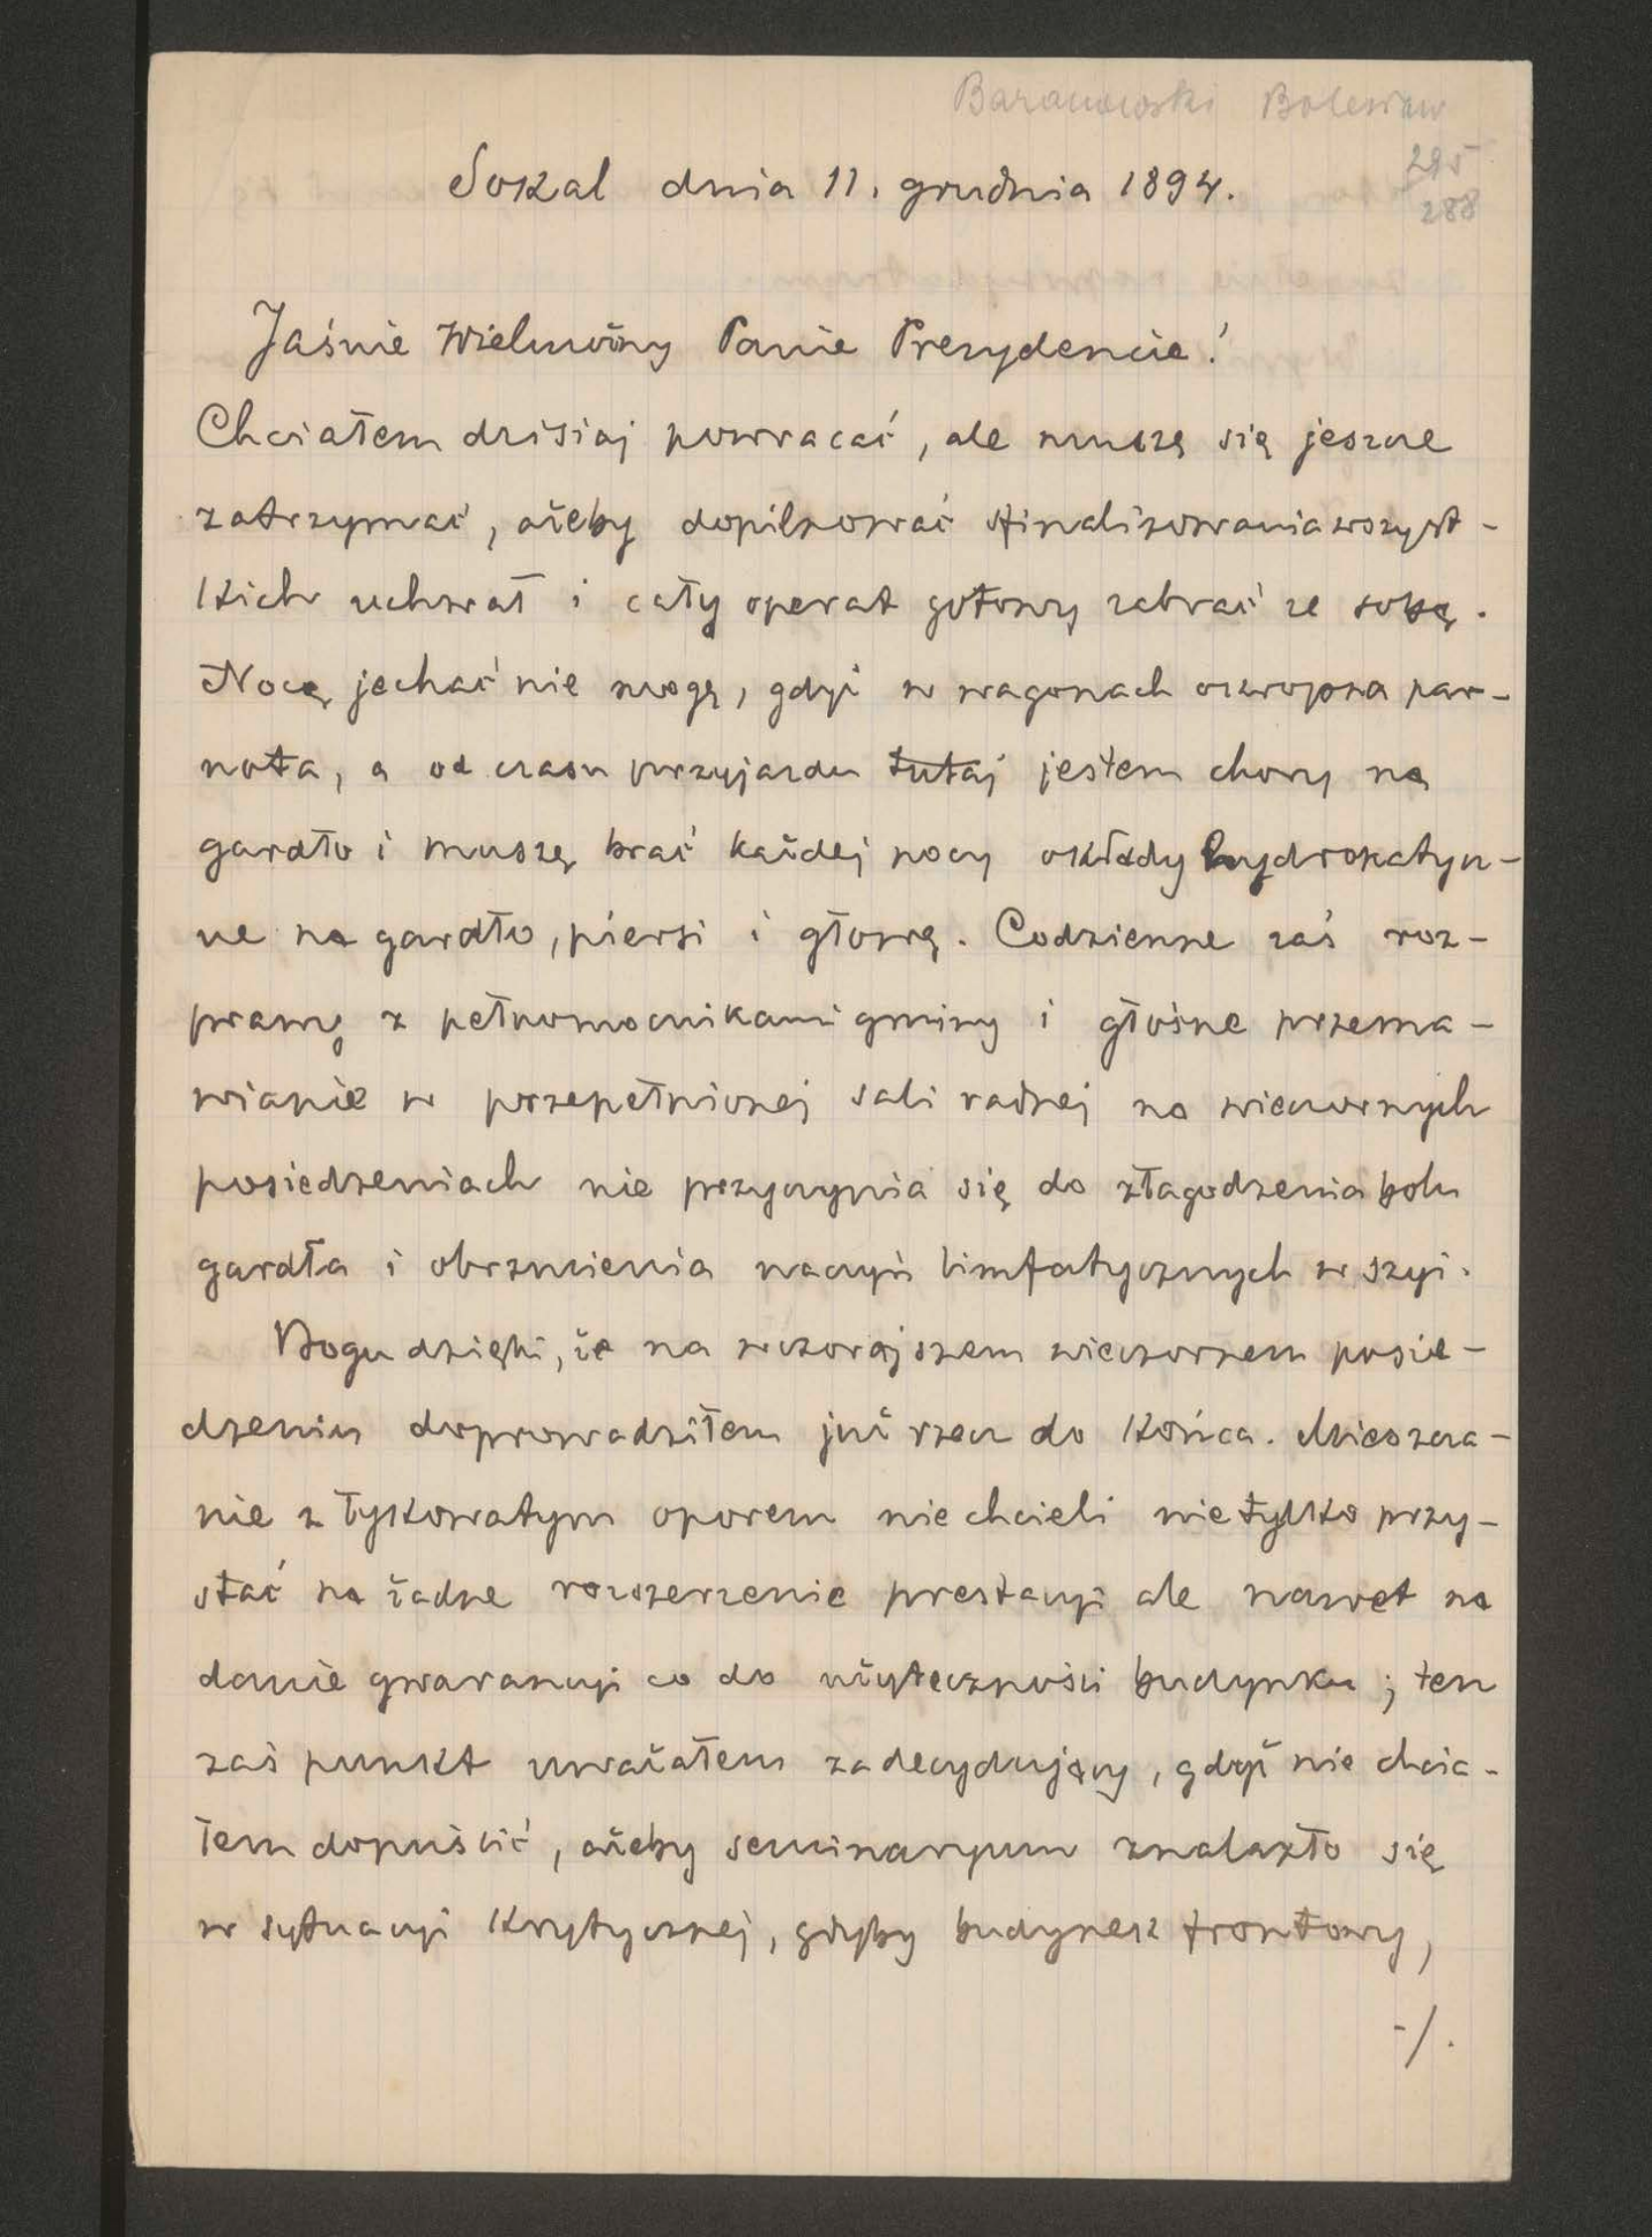 Baranowski Bolesław
Sokal dnia 11. grudnia 1894.
295
288
Jaśnie Wielmożny Panie Prezydencie!
Chciałem dzisiaj powracać, ale muszę się jeszcze
zatrzymać, ażeby dopilnować sfinalizowania wszyst-
kich uchwał i cały operat gotowy zabrać ze sobą.
Nocą jechać nie mogę, gdyż w wagonach okropna par-
nota, a od czasu przyjazdu tutaj jestem chory na
gardło i muszę brać każdej nocy okłady hydropatycz-
ne na gardło, piersi i głowę. Codzienne zaś roz-
prawy z pełnomocnikami gminy i głośne przema-
wianie w przepełnionej sali radnej na wieczornych
posiedzeniach nie przyczynia się do złagodzenia bolu
gardła i obrzmienia naczyń limfatycznych w szyi.
Bogu dzięki, że na wczorajszem wieczornem posie-
dzeniu doprowadziłem już rzecz do końca. Mieszcza-
nie z łykowatym oporem nie chcieli nietylko przy-
stać na żadne rozszerzenie prestacyi ale nawet na
danie gwarancyi co do użyteczności budynku; ten
zaś punkt uważałem za decydujący, gdyż nie chcia-
łem dopuścić, ażeby seminaryum znalazło się
w sytuacyi krytycznej, gdyby budynek frontowy,
-/.